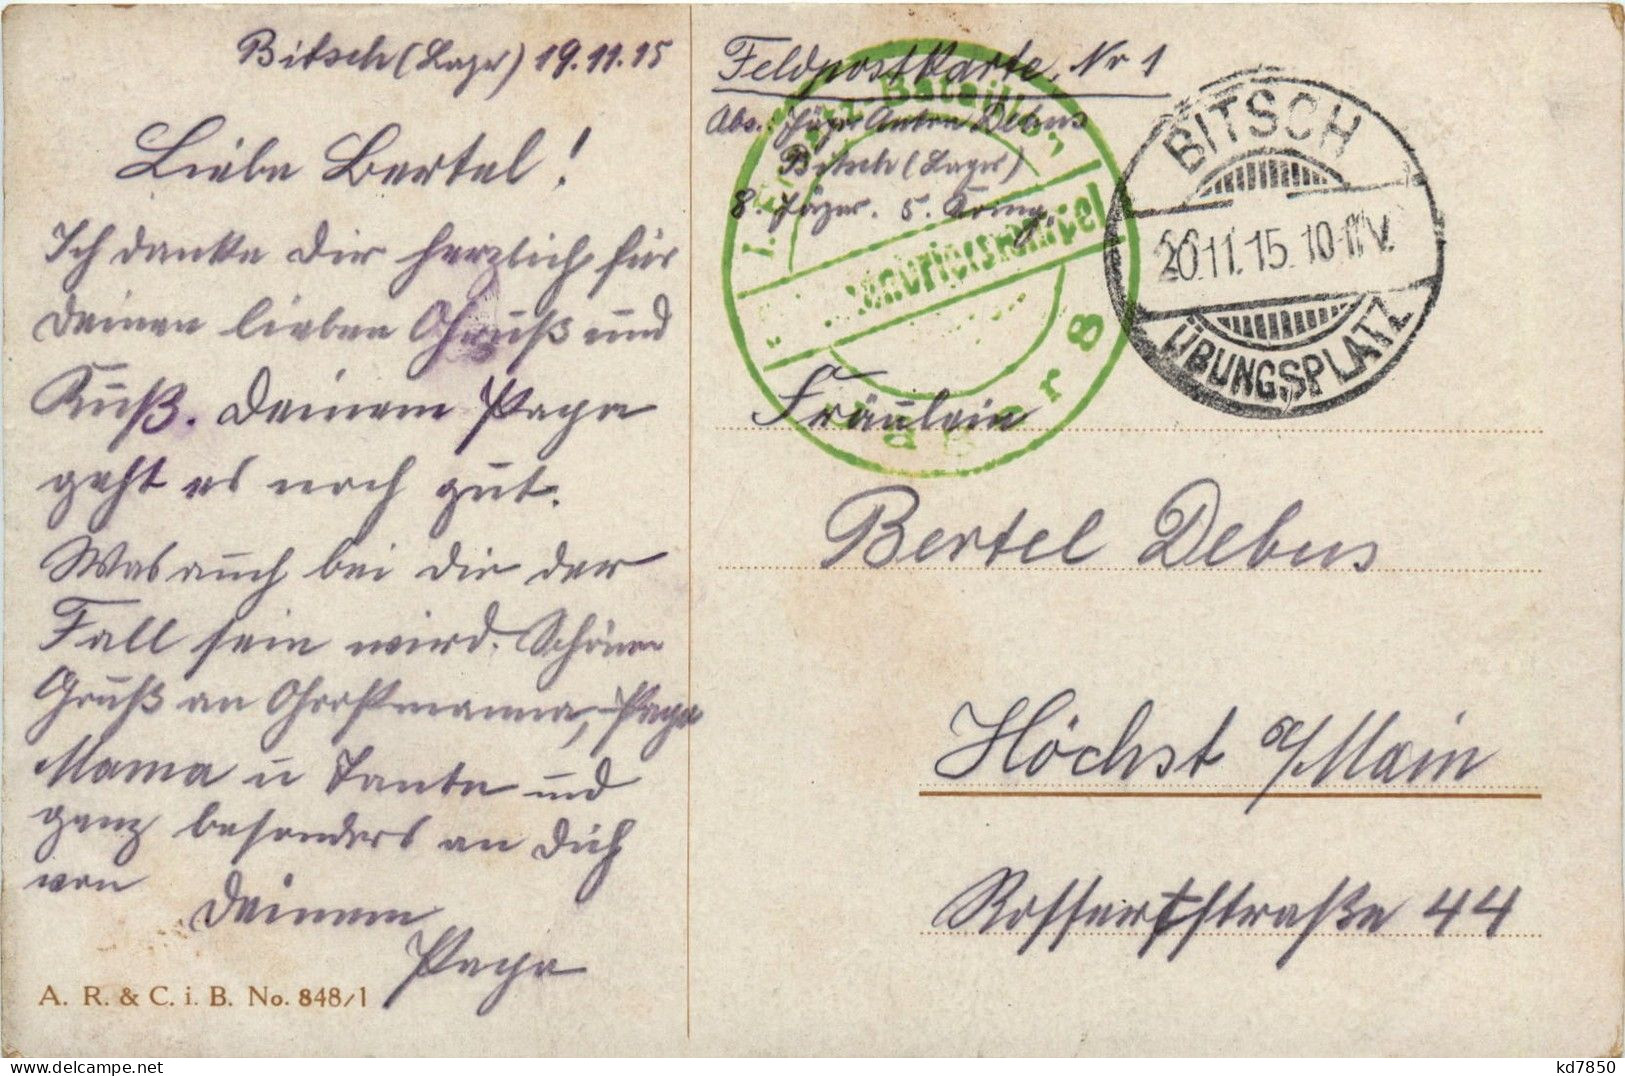 Bitsch (Lager) 19.11.15
Liebe Bertel!
Ich danke Dir herzlich für
Deinen lieben Gruß und
Kuß. Deinem Papa
geht es noch gut.
Was auch bei dir der
Fall sein wird. Schönen
Gruß an Großmama, Papa
Mama u Tante und
ganz besonders an Dich
von Deinem
Papa
A. R. & C. i. B. No. 848/1
Feldpostkarte. Nr 1
Abs. Jäger Anton Debus
Bitsch (Lager)
8. Jäger. 5. Komp.
Bataillon
8
BITSCH
20.11.15. 10-11V.
ÜBUNGSPLATZ
Fräulein
Bertel Debus
Höchst a/Main
Rossertstraße 44
kd7850